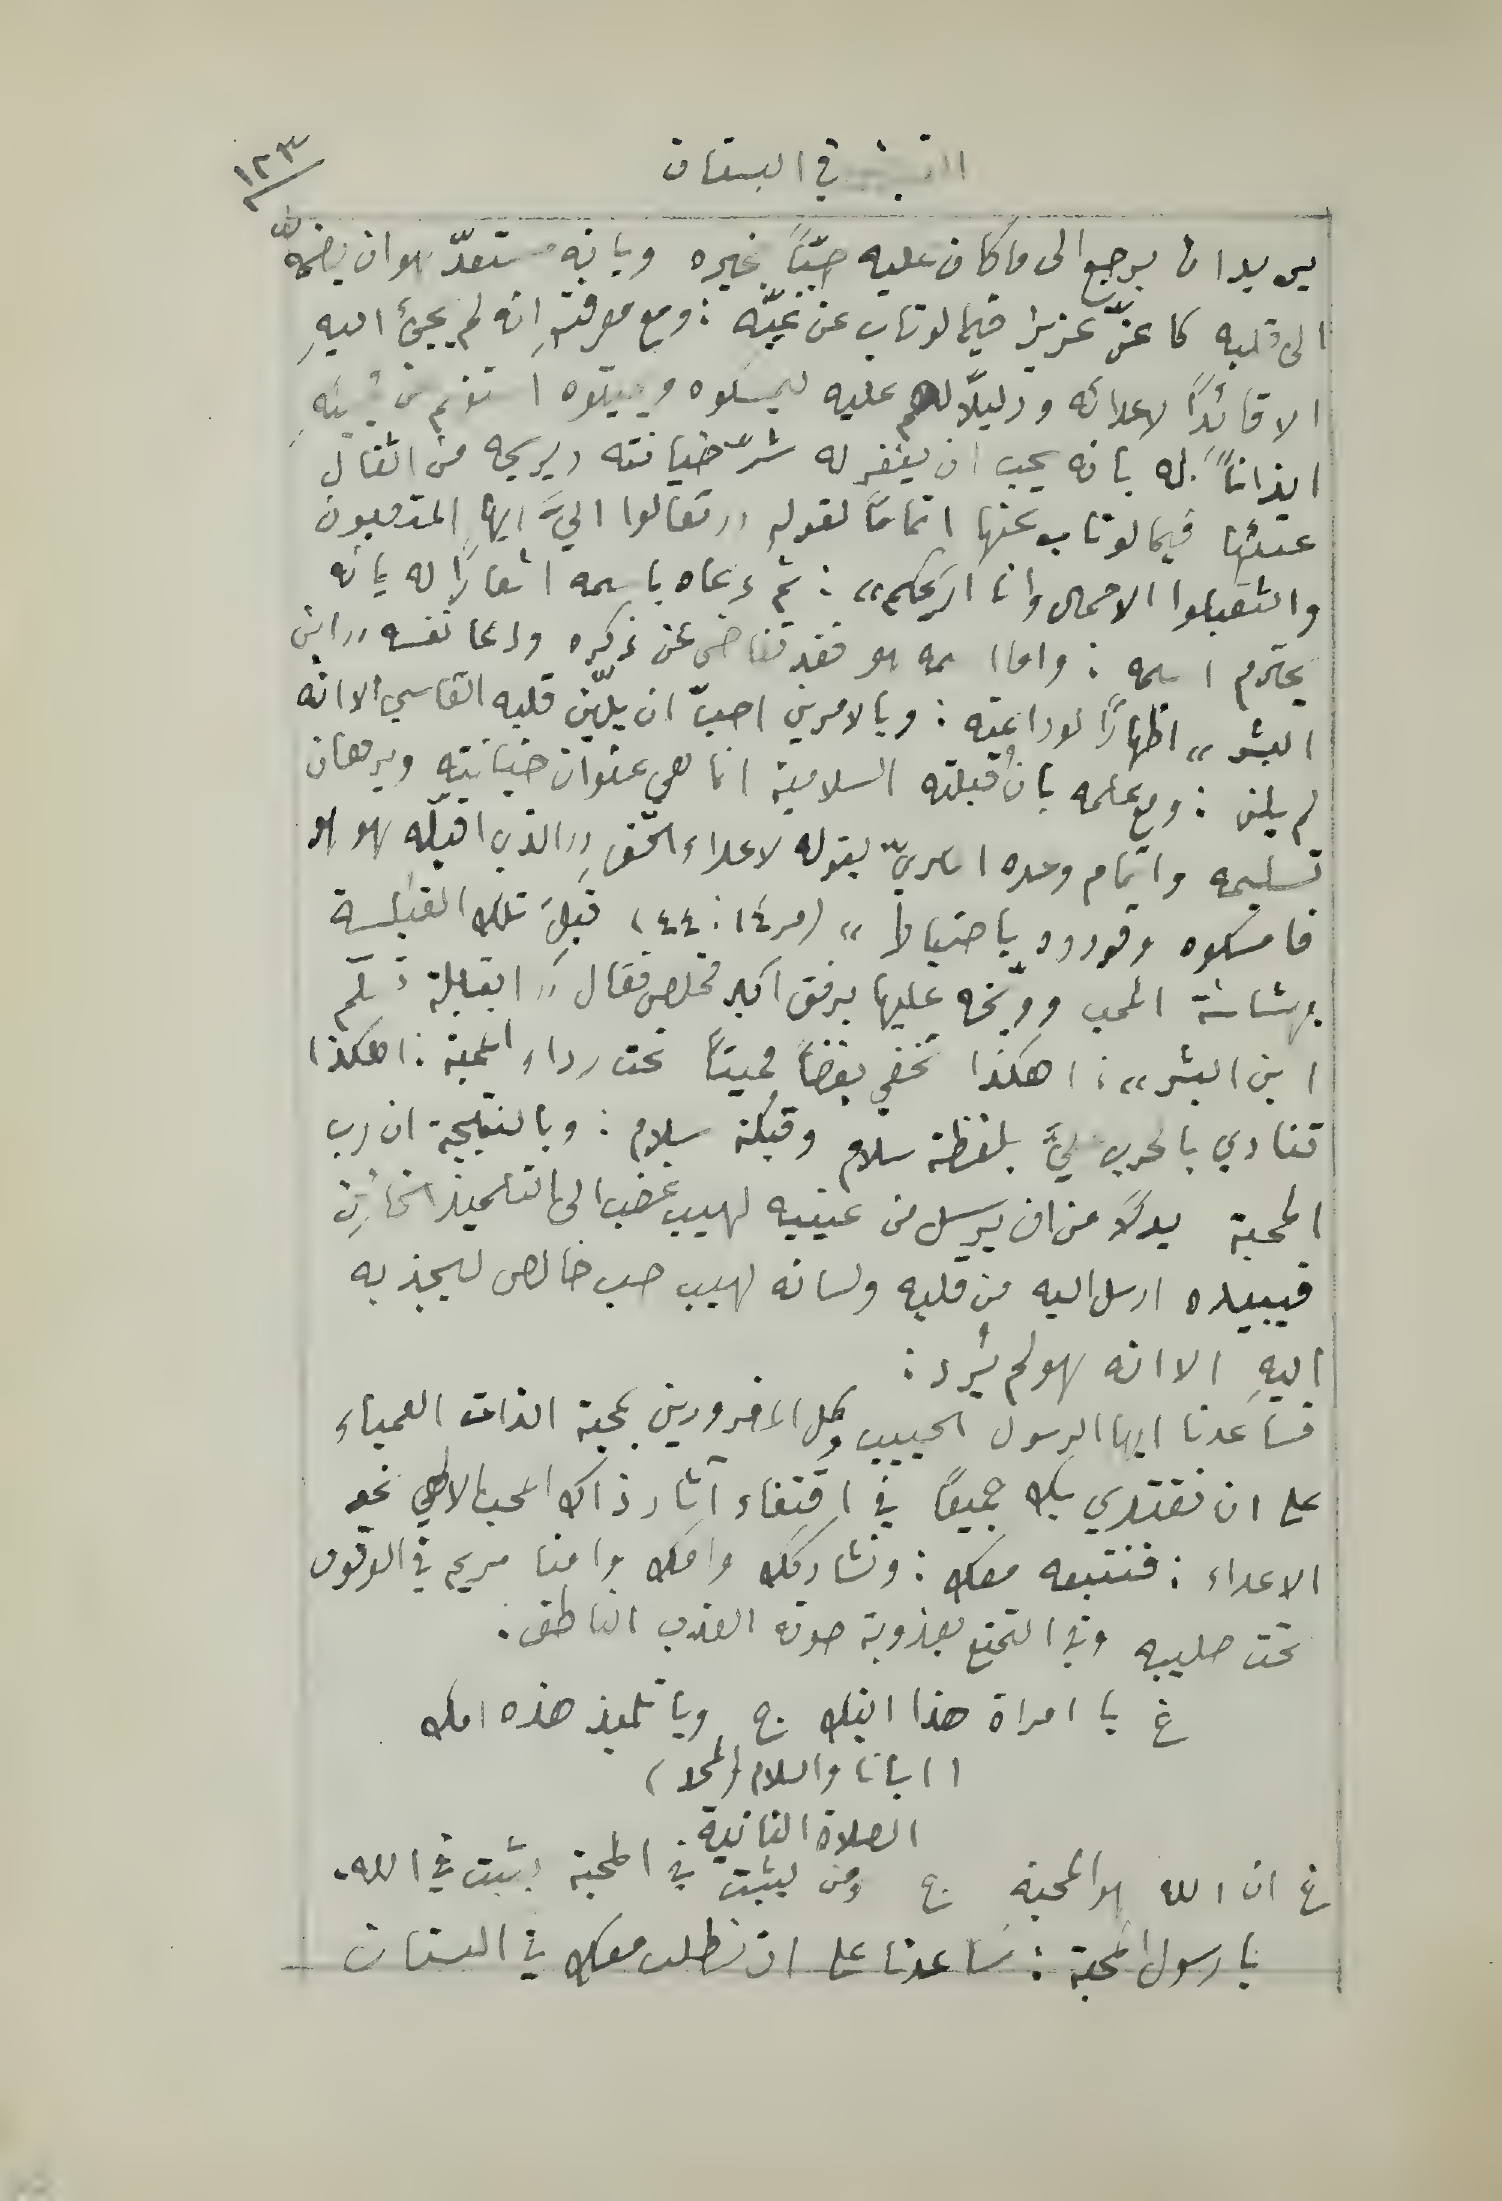 في البستان
١٢٣
يريد ان يرجع الى ما كان عليه حبًّا بخيره وبانه مستعدّ هو ان يضمّه
الى قلبه كاعزّ عزيز فيما لو تاب عن غيّه : ومع معرفتهِ انه لم يجئ اليهِ
الا قائدًا لاعدائه ودليلًا لهم عليه ليمسكوه ويميتوه
ايذانًا له بانه يحب ان يغفر له شرّ خيانته ويريحه من اثقال
فيما لو تاب عنها اتمامًا لقولهِ ,, تعالوا اليَّ ايها المتعبون
والثقيلوا الاحمال وانا اريحكم ,, : ثم دعاه باسمه اشعارًا له بانه
يحترم اسمه : واما اسمه هو فقد تغاضى عن ذكره ودعا نفسه ,, ابن
البشر ,, اظهارًا لوداعته : وبالامرين احبّ ان يليّن قلبه القاسي الا انه
لم يلن : ومع علمه بان قبلته السلامية انما هي عنوان خيانتهِ وبرهان
تسليمه واتمام وعده السريّ بقوله لاعداء الحق ,, الذي اقبّله هو هو
فامسكوه وقودوه باحتياط ,, (مر ١٤ : ٤٤) قبلَ تلك القبلة
بهشاشة المحب ووبّخه عليها برفق اكبر مخلص فقال ,, ابقبلة تسلّم
ابن البشر ,, : اهكذا تخفي بغضًا مميتًا تحت رداء المحبة : اهكذا
تنادي بالحرب عليَّ بلفظة سلام وقبلة سلام : وبالنتيجة ان رب
المحبة بدلًا من ان يرسل من عينيه لهيب غضب الى التلميذ الخائن
فيبيده ارسل اليه من قلبه ولسانه لهيب حب خالص ليجذبه
اليهِ الا انه هو لم يُرِد :
فساعدنا ايها الرسول الحبيب وكل المغرورين بمحبة الذات العمياء
على ان نقتدي بك جميعًا في اقتفاء آثار ذاك المحب الالهي نحو
الاعداء : فنتبعه معك : ونشاركك وامك وامنا مريم في الوقوف
تحت صليبه وفي التمتع بعذوبة صوته العذب الناطق :
غ يا امراة هذا ابنك ج ويا تلميذ هذه امك
(ابانا والسلام والمجد)
الصلاة الثانية
غ ان الله هو المحبة ج ومن يثبت في المحبة يثبت في الله.
يا رسول المحبة : ساعدنا على ان نطلب معك في البستان